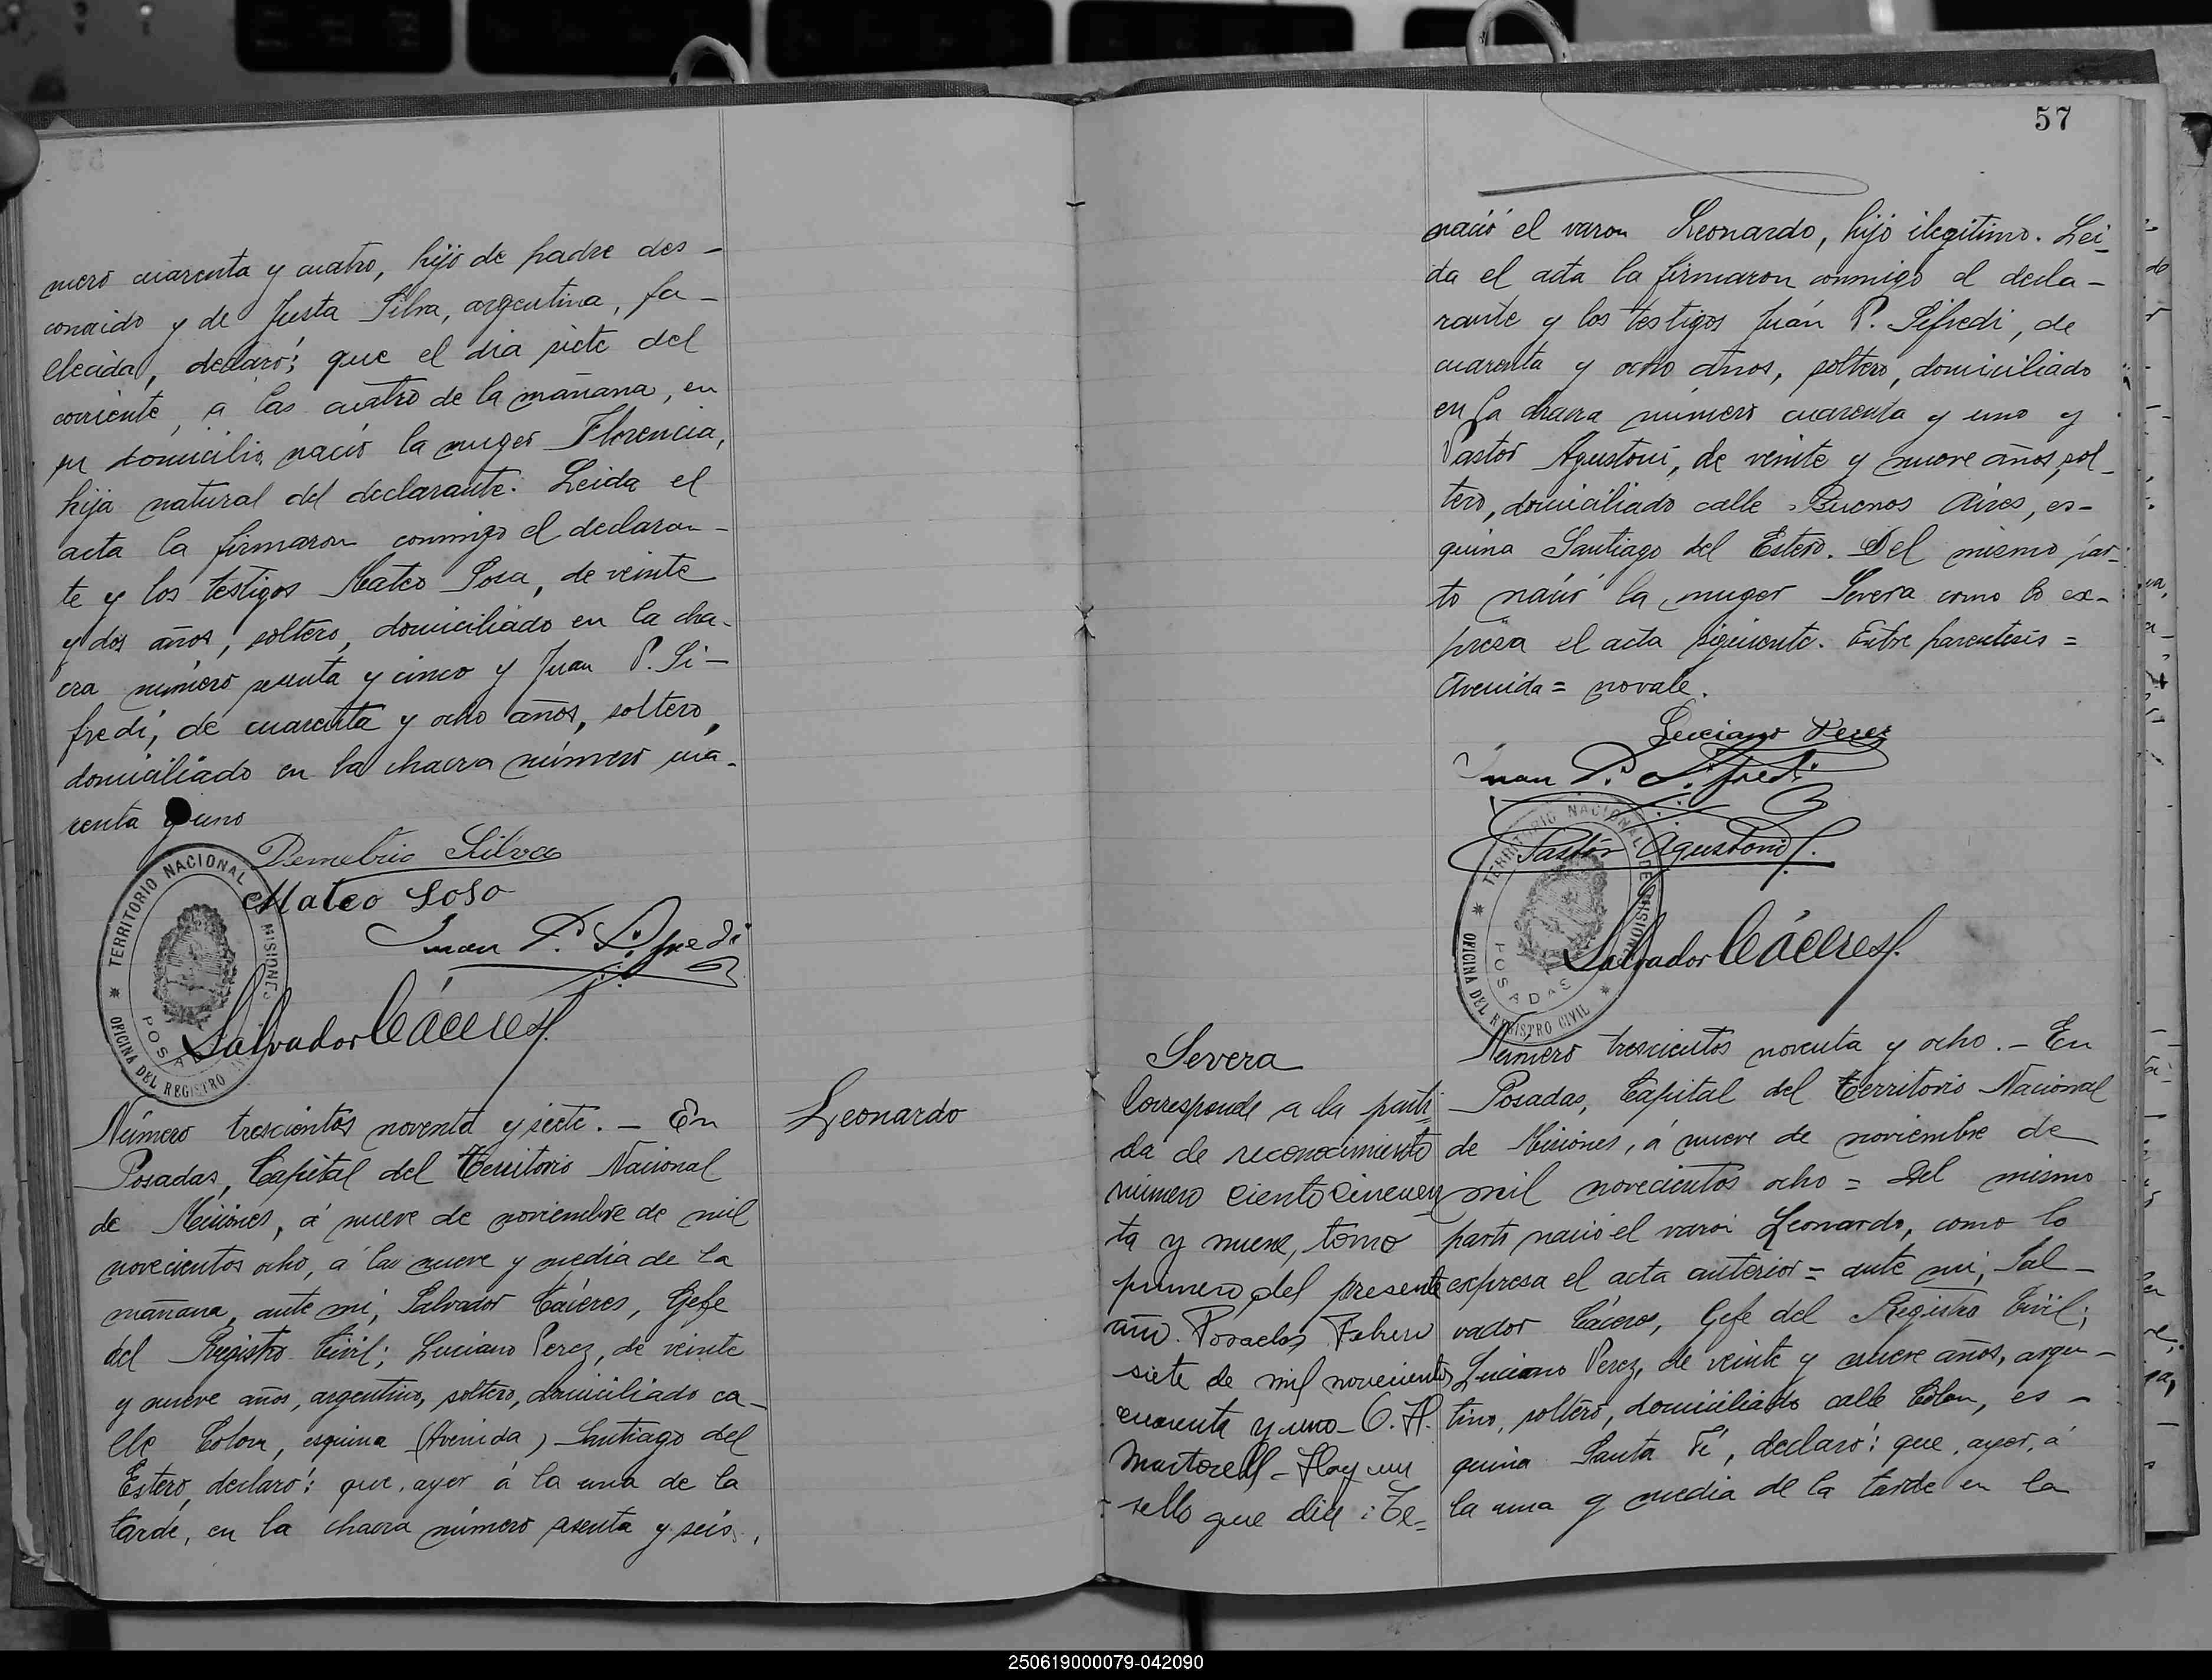 mero cuarenta y cuatro, hijo de padre des-
conocido y de Justa Silva, argentina, fa-
llecida, declaró: que el dia siete del
corriente, a las cuatro de la mañana, en
su domicilio nació la muger Florencia,
hija natural del declarante. Leida el
acta la firmaron conmigo el declaran-
te y los testigos Mateo Sosa, de veinte
y dos años, soltero, domiciliado en la cha-
cra número sesenta y cinco y Juan P. Si-
fredi, de cuarenta y ocho años, soltero,
domiciliado en la chacra número cua-
renta y uno
Demetrio Silva
Mateo Soso
Juan P. Sifredi
Salvador Cáceres
TERRITORIO NACIONAL MISIONES
POSADAS
OFICINA DEL REGISTRO
Número trescientos noventa y siete. - En
Posadas, Capital del Territorio Nacional
de Misiones, á nueve de noviembre de mil
novecientos ocho, á las nueve y media de la
mañana, ante mi, Salvador Cáceres, Gefe
del Registro Civil; Luciano Perez, de veinte
y nueve años, argentino, soltero, domiciliado ca-
lle Colon, esquina (Avenida) Santiago del
Estero, declaró: que, ayer á la una de la
tarde, en la chacra número sesenta y seis,
Leonardo
57
nació el varon Leonardo, hijo ilegitimo. Lei-
da el acta la firmaron conmigo el decla-
rante y los testigos Juán P. Sifredi, de
cuarenta y ocho años, soltero, domiciliado
en la chacra número cuarenta y uno y
Pastor Agustoni, de veinte y nueve años, sol-
tero, domiciliado calle Buenos Aires, es-
quina Santiago del Estero. Del mismo par-
to nació la muger Severa como lo ex-
presa el acta siguiente. Entre parentesis =
Avenida = no vale.
Luciano Perez
Juan P. Sifredi
Pastor Agustoni
Salvador Cáceres
TERRITORIO NACIONAL DE MISIONES
POSADAS
OFICINA DEL REGISTRO CIVIL
Severa
Corresponde a la parti-
da de reconocimiento
número ciento cincuen
ta y nueve, tomo
primero del presente
año. Posadas Febrero
siete de mil novecientos
cuarenta y uno - C. A.
Martorell - Hay un
sello que dice: Te-
Número trescientos noventa y ocho. - En
Posadas, Capital del Territorio Nacional
de Misiones, á nueve de noviembre de
mil novecientos ocho = Del mismo
parto nació el varon Leonardo, como lo
expresa el acta anterior = ante mi, Sal-
vador Cáceres, Gefe del Registro Civil;
Luciano Perez, de veinte y nueve años, argen-
tino, soltero, domiciliado calle Colon, es-
quina Santa Fé, declaró: que, ayer, á
la una y media de la tarde en la
250619000079-042090